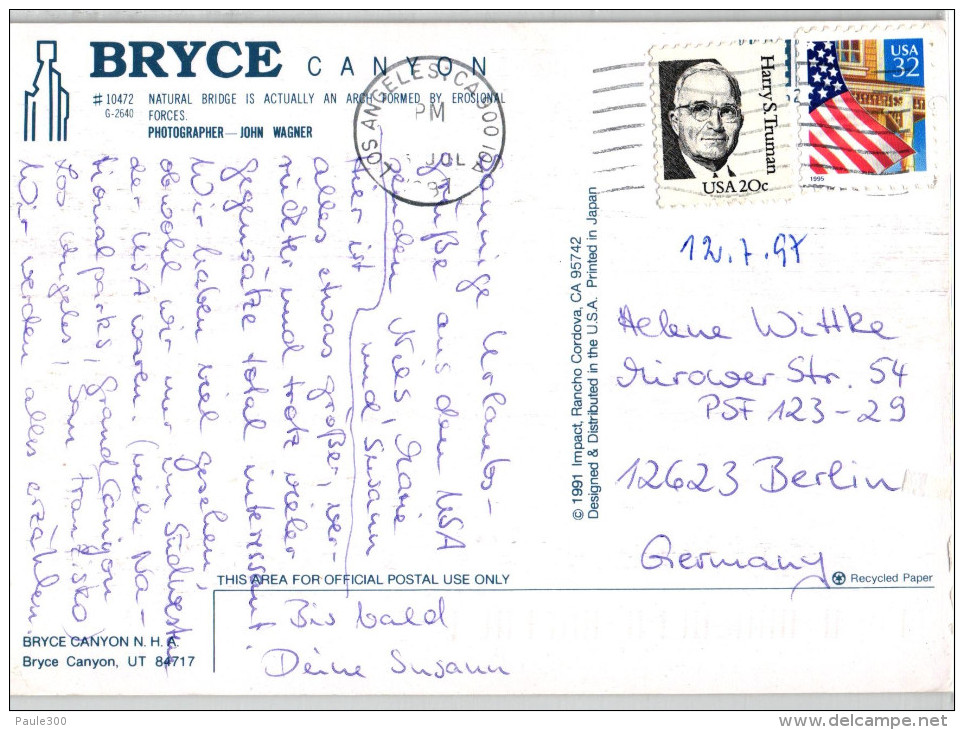 BRYCE CANYON
#10472 NATURAL BRIDGE IS ACTUALLY AN ARCH FORMED BY EROSIONAL
G-2640 FORCES.
PHOTOGRAPHER—JOHN WAGNER
LOS ANGELES, CA 900
PM
JUL
97
Harry S. Truman
USA 20c
USA
32
1995
Sonnige Urlaubs-
grüße aus den USA
senden Nils, Marie
und Susann
Hier ist
alles etwas größer, ver-
rückter und trotz vieler
Gegensätze total interessant
Wir haben viel gesehen,
obwohl wir nur im Südwesten
der USA waren. (viele Na-
tionalparks, Grand Canigon
Los Angeles, San Franzisko)
Wir werden alles erzählen.
Bis bald
Deine Susann
12.7.97
Helene Wittke
Mirower Str. 54
PSF 123-29
12623 Berlin
Germany
© 1991 Impact, Rancho Cordova, CA 95742
Designed & Distributed in the U.S.A. Printed in Japan
THIS AREA FOR OFFICIAL POSTAL USE ONLY
Recycled Paper
BRYCE CANYON N. H. A.
Bryce Canyon, UT 84717
Paule300
www.delcampe.net